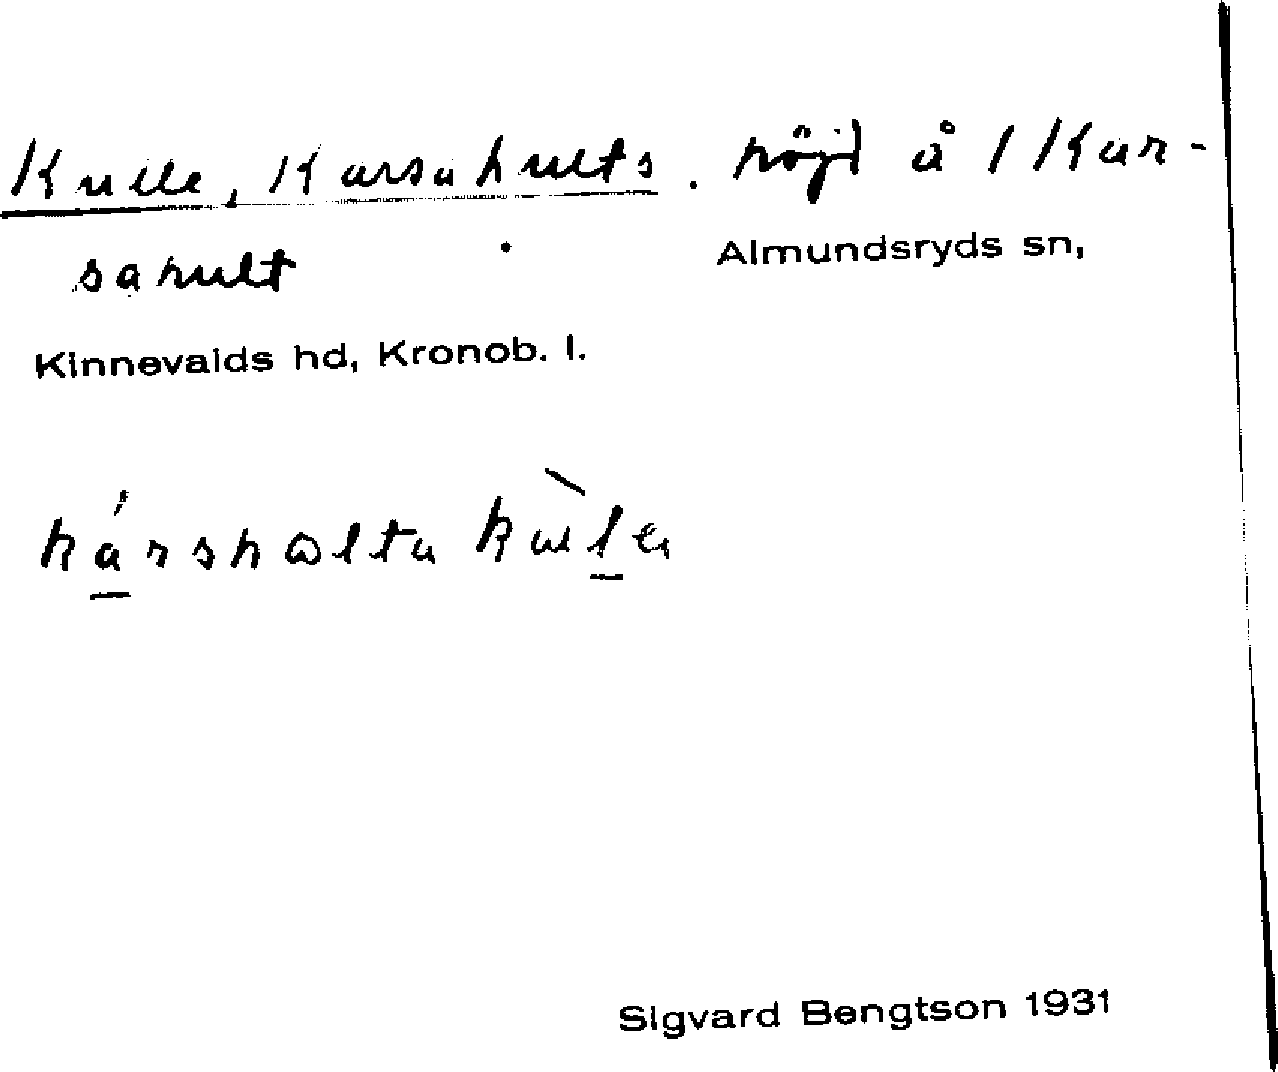 Kulle, Karsahults. höjd å 1 Kar-
sahult
Almundsryds sn,
Kinnevalds hd, Kronob. l.
Sigvard Bengtson 1931